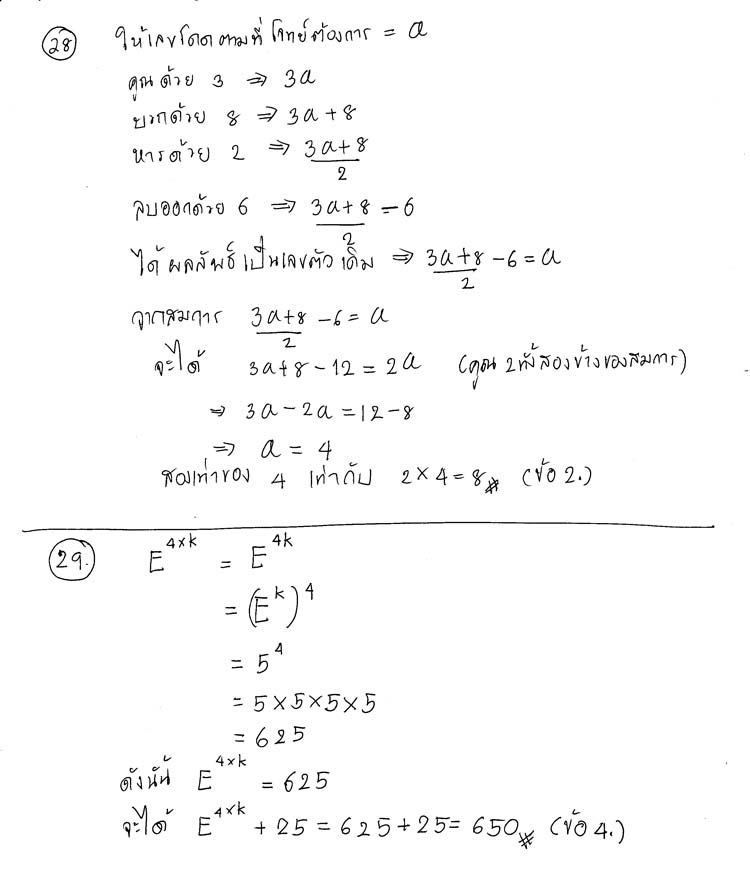 28 ให้เลขโดดตามที่โจทย์ต้องการ = a
คูณด้วย 3 ⇒ 3a
บวกด้วย 8 ⇒ 3a+8
หารด้วย 2 ⇒ (3a+8)/2
ลบออกด้วย 6 ⇒ (3a+8)/2 - 6
ได้ผลลัพธ์เป็นเลขตัวเดิม ⇒ (3a+8)/2 - 6 = a
จากสมการ (3a+8)/2 - 6 = a
จะได้ 3a+8-12 = 2a (คูณ 2 ทั้งสองข้างของสมการ)
⇒ 3a-2a = 12-8
⇒ a = 4
สองเท่าของ 4 เท่ากับ 2×4=8 # (ข้อ 2.)
29. E^(4×k) = E^(4k)
= (E^k)^4
= 5^4
= 5×5×5×5
= 625
ดังนั้น E^(4×k) = 625
จะได้ E^(4×k) + 25 = 625+25 = 650 # (ข้อ 4.)